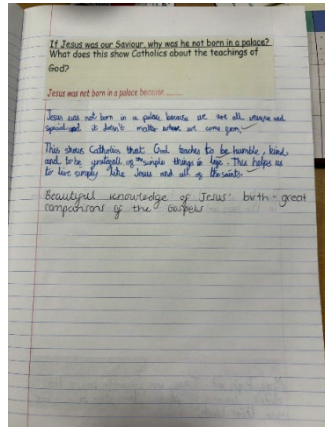 If Jesus was our Saviour, why was he not born in a palace?
What does this show Catholics about the teachings of
God?
Jesus was not born in a palace because ........
Jesus was not born in a palace because we are all unique and
special and it doesn't matter where we come from.
This shows Catholics that God teaches to be humble, kind,
and to be grateful of the simple things in life. This helps us
to live simply like Jesus and all of the saints.
Beautiful knowledge of Jesus' birth - great
comparisons of the Gospels